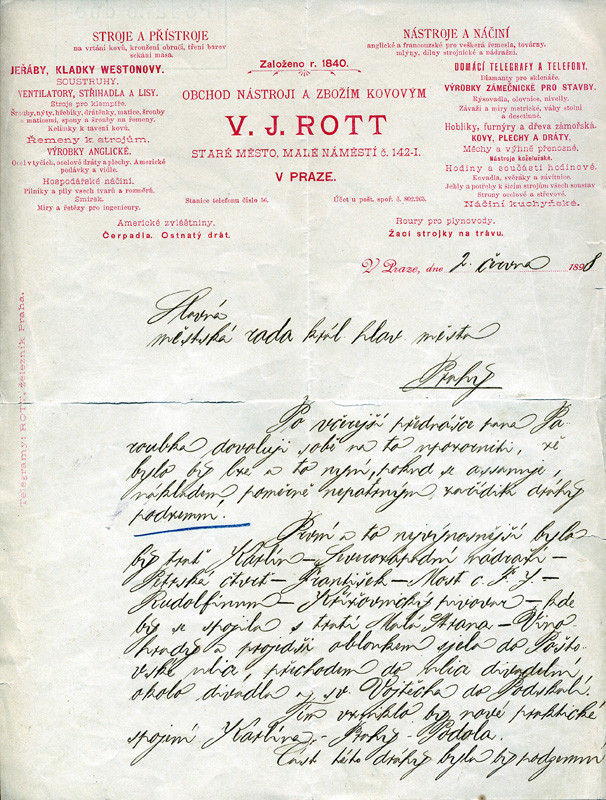 STROJE A PŘÍSTROJE
na vrtání kovů, kroužení obručí, tření barev
sekání masa.
JEŘÁBY, KLADKY WESTONOVY.
SOUSTRUHY.
VENTILATORY, STŘIHADLA A LISY.
Stroje pro klempíře.
Šrouby, nýty, hřebíky, drátěnky, matice, šrouby
s maticemi, spony a šrouby na řemeny.
Kelímky k tavení kovů.
Řemeny k strojům.
VÝROBKY ANGLICKÉ.
Ocel v tyčích, ocelové dráty a plechy. Americké
podávky a vidle.
Hospodářské náčiní.
Pilníky a pily všech tvarů a rozměrů.
Smirek.
Míry a řetězy pro ingenieury.
Americké zvláštniny.
Čerpadla. Ostnatý drát.
Založeno r. 1840.
OBCHOD NÁSTROJI A ZBOŽÍM KOVOVÝM
V. J. ROTT
STARÉ MĚSTO, MALÉ NÁMĚSTÍ č. 142-I.
V PRAZE.
Stanice telefonu číslo 56.
Účet u pošt. spoř. č. 802.265.
NÁSTROJE A NÁČINÍ
anglické a francouzské pro veškerá řemesla, továrny,
mlýny, dílny strojnické a nádražní.
DOMÁCÍ TELEGRAFY A TELEFONY.
Diamanty pro sklenáře.
VÝROBKY ZÁMEČNICKÉ PRO STAVBY.
Rýsovadla, olovnice, nivelly.
Závaží a míry metrické, váhy stolní
a desetinné.
Hoblíky, furnýry a dřeva zámořská.
KOVY, PLECHY A DRÁTY,
Měchy a výhně přenosné.
Nástroje koželužské.
Hodiny a součásti hodinové.
Kovadla, svěráky a závitnice.
Jehly a potřeby k šicím strojům všech soustav
Struny ocelové a střevové.
Náčiní kuchyňské.
Roury pro plynovody.
Žací strojky na trávu.
V Praze, dne 2. června 1898
Telegramy: ROTT, železník Praha.
Slavná
městská rada král. hlav. města
Prahy
Po včerejší přednášce pana Pa-
roubka dovoluji sobě na to upozorniti, že
bylo by lze a to nyní, pokud se assanuje,
nákladem poměrně nepatrným zaříditi dráhy
podzemní.
První a to nejvýnosnější byla
by trať Karlín – Severozápadní nádraží –
Petrská čtvrť – František – Most c. F. J. –
Rudolfinum – Křižovnický pivovar – kde
by se spojila s tratí Malá Strana – Vino-
hrady a projedši obloukem sjela do Pošto-
vské ulice, příchodem do ulice divadelní
okolo divadla a sv. Vojtěcha do Podskalí.
Tím vzniklo by nové praktické
spojení Karlína – Prahy – Podola.
Část této dráhy byla by podzemní